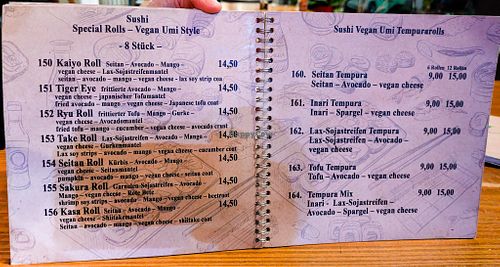 Sushi
Special Rolls – Vegan Umi Style
- 8 Stück -
150 Kaiyo Roll Seitan – Avocado – Mango – 14,50
vegan cheese – Lax-Sojastreifenmantel
seitan – avocado – mango – vegan cheese – lax soy strip coat
151 Tiger Eye frittierte Avocado – Mango – 14,50
vegan cheese – japanischer Tofumantel
fried avocado – mango – vegan cheese – Japanese tofu coat
152 Ryu Roll frittierte Mango – Gurke – 14,50
vegan cheese – Avocadomantel
fried tofu – mango – cucumber – vegan cheese – avocado crust
153 Take Roll Lax-Sojastreifen – Avocado – Mango – 14,50
vegan cheese – Gurkenmantel
Lax soy strips – avocado – mango – vegan cheese – cucumber
154 Seitan Roll Kürbis – Avocado – Mango – 14,50
vegan cheese – Seitanmantel
pumpkin – avocado – mango – vegan cheese – seitan coat
155 Sakura Roll Garnelen-Sojastreifen – Avocado – 14,50
Mango – vegan cheese – Rote Bete
shrimp soy strips – avocado – mango – vegan cheese – beetroot
156 Kasa Roll Seitan – Avocado – Mango – 14,50
vegan cheese – Shiitakemantel
Seitan – avocado – mango – vegan cheese – shiitake coat
Sushi Vegan Umi Tempurarolls
6 Rollen 12 Rollen
160. Seitan Tempura 9,00 15,00
Seitan – Avocado – vegan cheese
161. Inari Tempura 9,00 15,00
Inari – Spargel – vegan cheese
162. Lax-Sojastreifen Tempura 9,00 15,00
Lax-Sojastreifen – Avocado –
vegan cheese
163. Tofu Tempura 9,00 15,00
Tofu – Avocado – vegan cheese
164. Tempura Mix 9,00 15,00
Inari - Lax-Sojastreifen –
Avocado – Spargel – vegan cheese